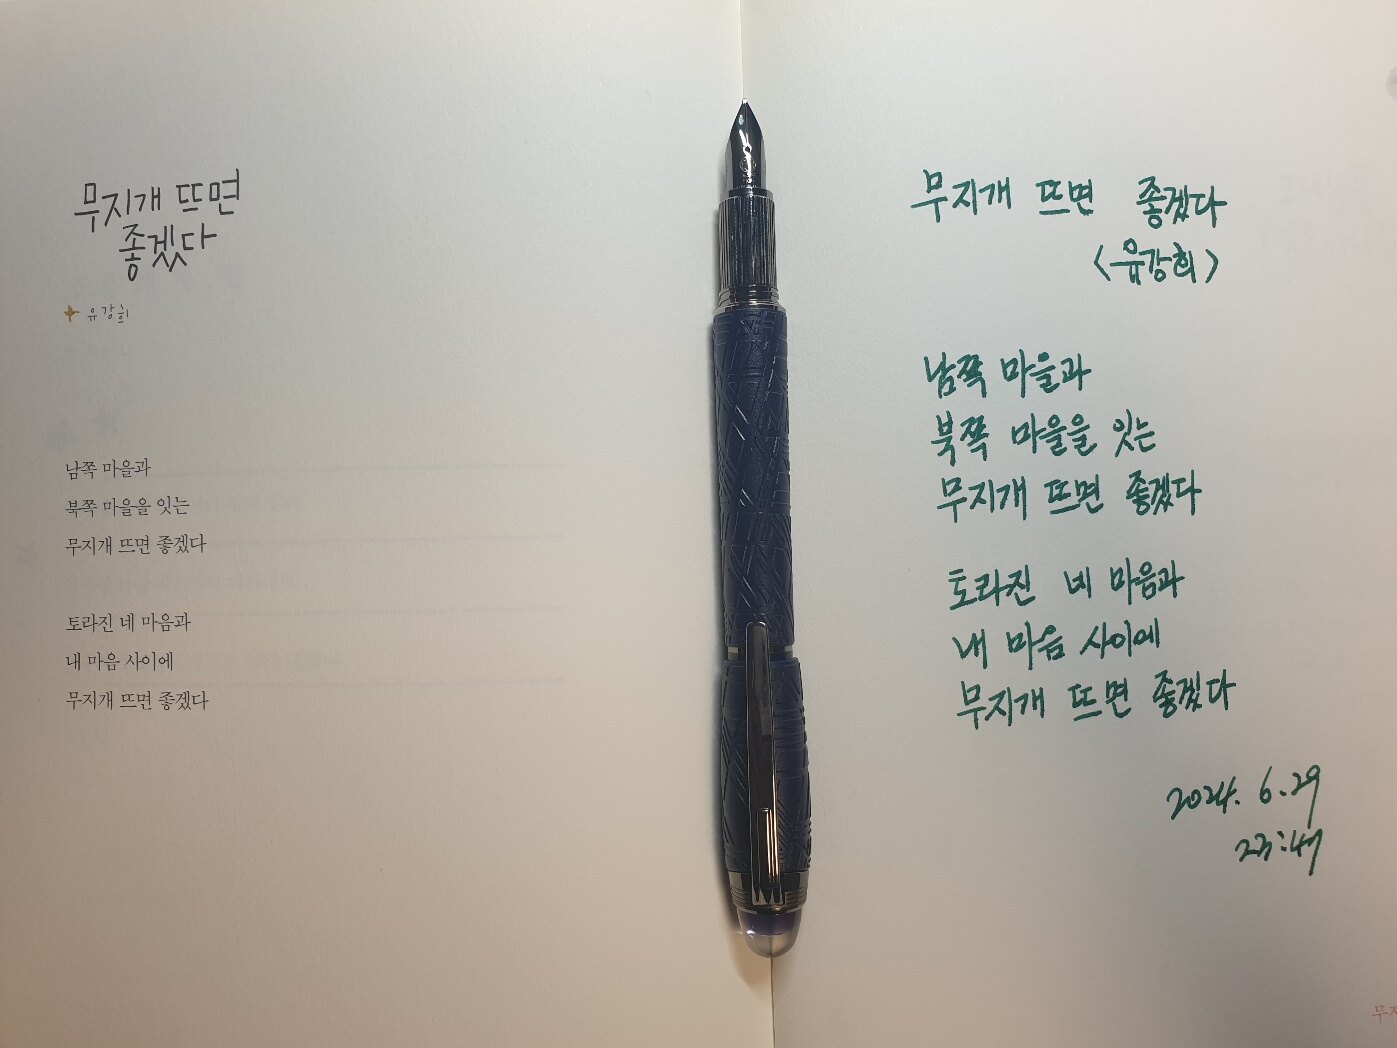 무지개 뜨면
좋겠다
유강희
남쪽 마을과
북쪽 마을을 잇는
무지개 뜨면 좋겠다
토라진 네 마음과
내 마음 사이에
무지개 뜨면 좋겠다
무지개 뜨면 좋겠다
<유강희>
남쪽 마을과
북쪽 마을을 잇는
무지개 뜨면 좋겠다
토라진 네 마음과
내 마음 사이에
무지개 뜨면 좋겠다
2024. 6. 29
23:47